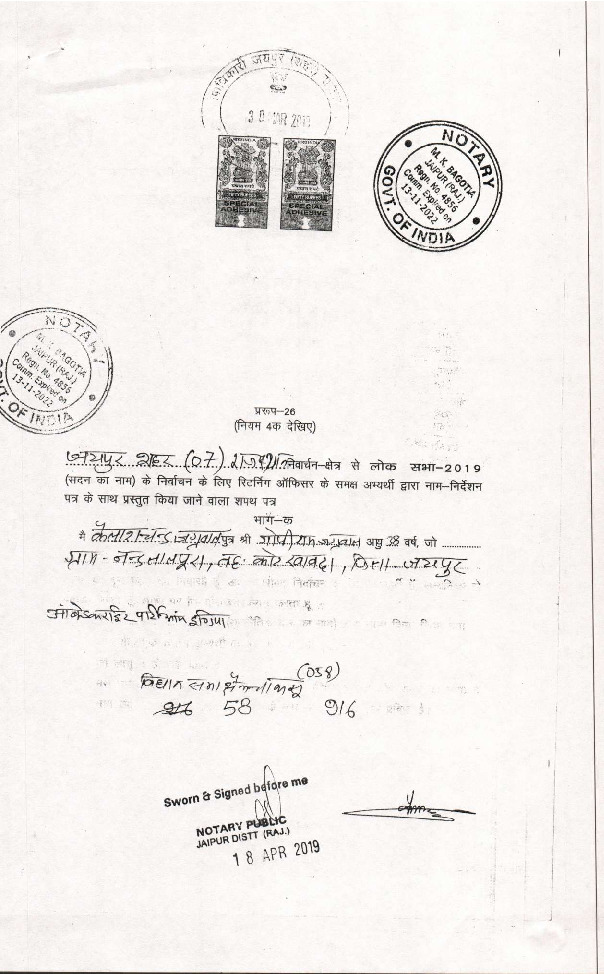 जयपुर (शहर)
30 MAR 2019
INDIA
INDIA
SPECIAL
ADHESIVE
SPECIAL
ADHESIVE
NOTARY
M. K. BAGOTIA
JAIPUR (RAJ.)
Regn. No. 4856
Comm. Expired on
13-11-2022
GOVT. OF INDIA
NOTARY
M. K. BAGOTIA
JAIPUR (RAJ.)
Regn. No. 4856
Comm. Expired on
13-11-2022
GOVT. OF INDIA
प्ररूप–26
(नियम 4क देखिए)
जयपुर शहर (07) राजस्थान निर्वाचन–क्षेत्र से लोक सभा–2019
(सदन का नाम) के निर्वाचन के लिए रिटर्निग ऑफिसर के समक्ष अभ्यर्थी द्वारा नाम–निर्देशन
पत्र के साथ प्रस्तुत किया जाने वाला शपथ पत्र
भाग–क
मै कैलाश चन्द जाटवाल पुत्र श्री गोपीराम आयु 38 वर्ष, जो ..............
ग्राम - नन्दलालपुरा, तह. कोटखावदा, जिला जयपुर
अम्बेडकराईट पार्टी ऑफ इण्डिया
विधान सभा क्षेत्र (058)
58 916
Sworn & Signed before me
NOTARY PUBLIC
JAIPUR DISTT (RAJ.)
18 APR 2019